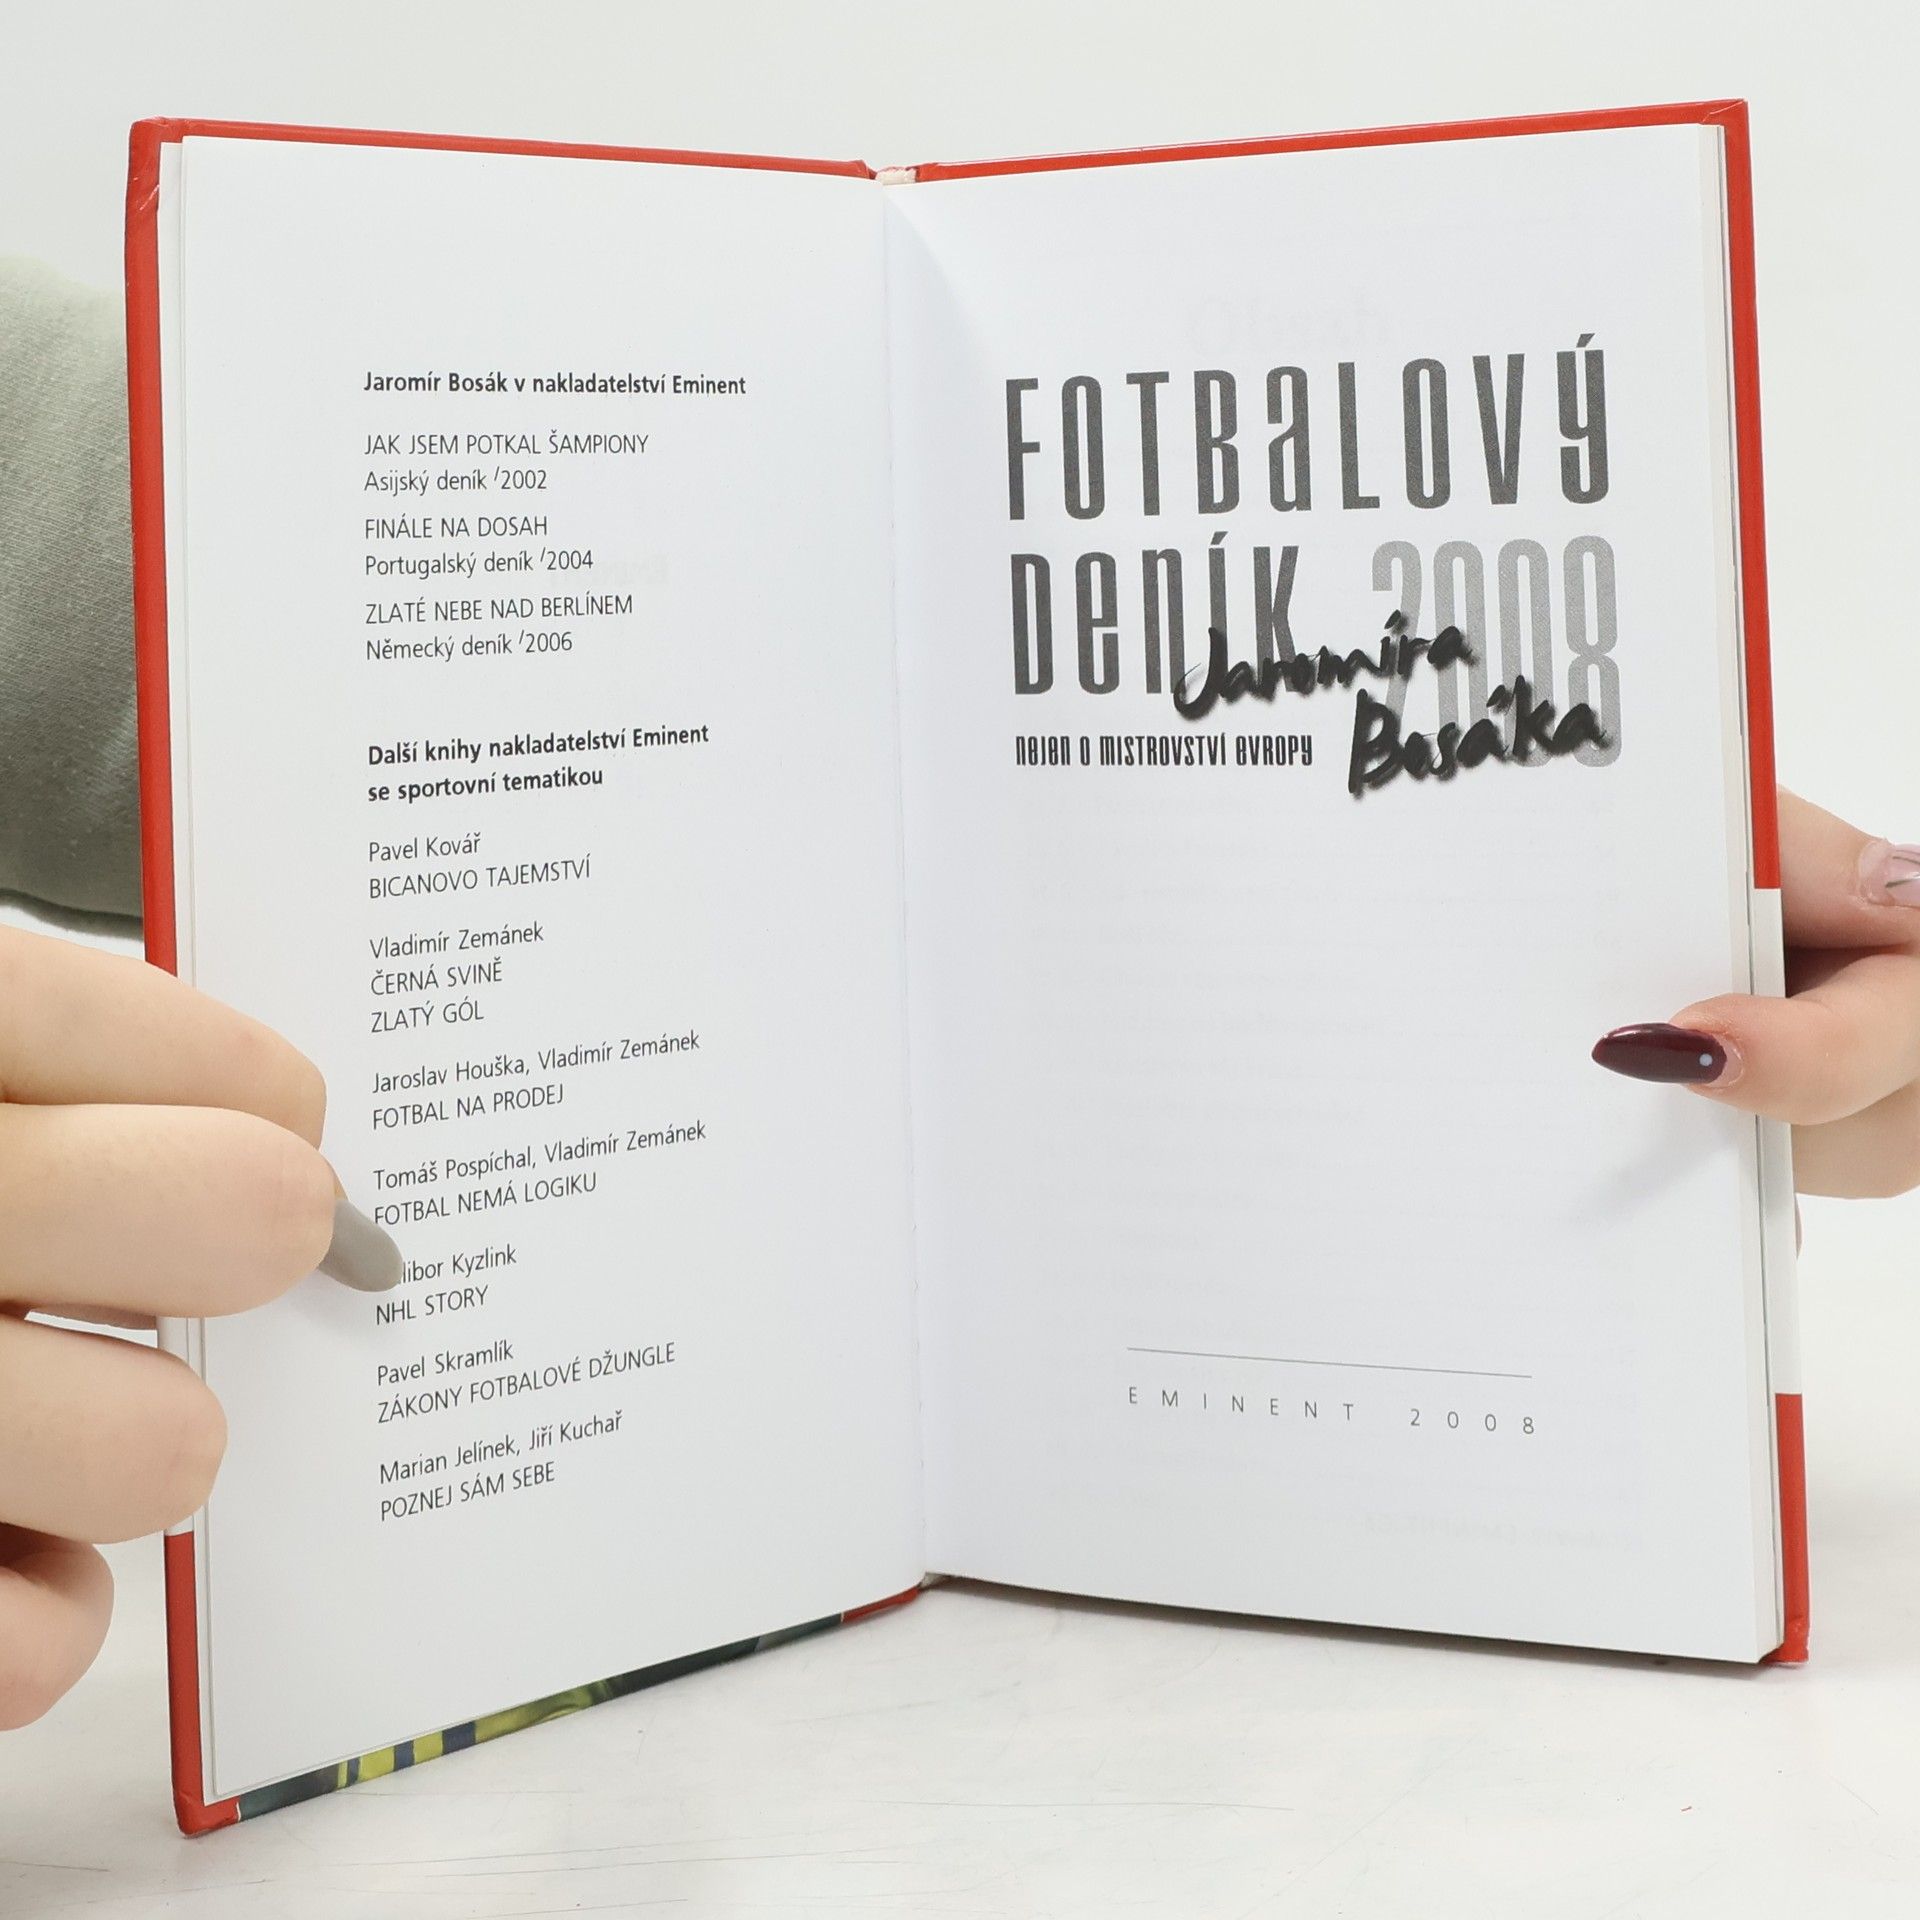 Jaromír Bosák v nakladatelství Eminent
JAK JSEM POTKAL ŠAMPIONY
Asijský deník /2002
FINÁLE NA DOSAH
Portugalský deník /2004
ZLATÉ NEBE NAD BERLÍNEM
Německý deník /2006
Další knihy nakladatelství Eminent
se sportovní tematikou
Pavel Kovář
BICANOVO TAJEMSTVÍ
Vladimír Zemánek
ČERNÁ SVINĚ
ZLATÝ GÓL
Jaroslav Houška, Vladimír Zemánek
FOTBAL NA PRODEJ
Tomáš Pospíchal, Vladimír Zemánek
FOTBAL NEMÁ LOGIKU
Kyzlink
NHL STORY
Pavel Skramlík
ZÁKONY FOTBALOVÉ DŽUNGLE
Marian Jelínek, Jiří Kuchař
POZNEJ SÁM SEBE
FOTBALOVÝ
DENÍK 2008
Jaromíra
Bosáka
NEJEN O MISTROVSTVÍ EVROPY
EMINENT 2008